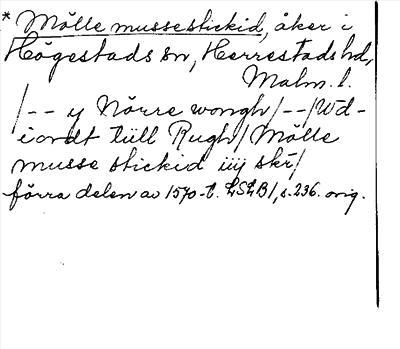 * Mölle mussestickid, åker i
Högestads sn, Herrestads hd,
Malm. l.
/-- y Nörre wongh/--/Wd-
i ondt tüll Rugh/Mölle
musse stickid iiij skr/
förra delen av 1570-t. LSLB1, s. 236. orig.